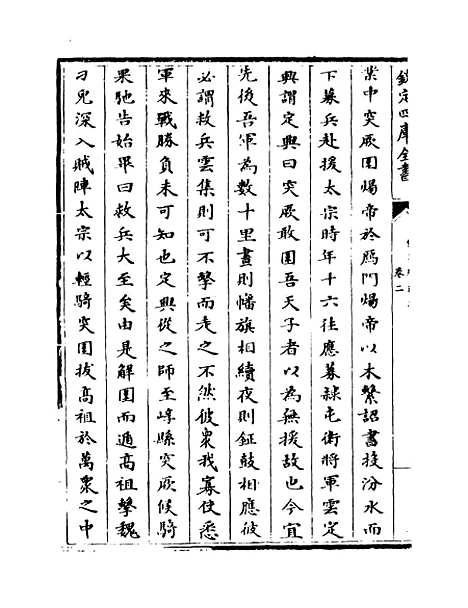 欽定四庫全書
卷二
業中突厥圍煬帝於鴈門煬帝以木繫詔書投汾水而
下募兵赴援太宗時年十六往應募隸屯衛將軍雲定
興謂定興曰突厥敢圍吾天子者以為無援故也今宜
先後吾軍為數十里晝則旛旗相續夜則鉦鼓相應彼
必謂救兵雲集則可不擊而走之不然彼衆我寡使悉
軍來戰勝負未可知也定興從之師至崞縣突厥候騎
果馳告始畢曰救兵大至矣由是解圍而遁高祖擊魏
刁兒深入賊陣太宗以輕騎突圍拔高祖於萬衆之中